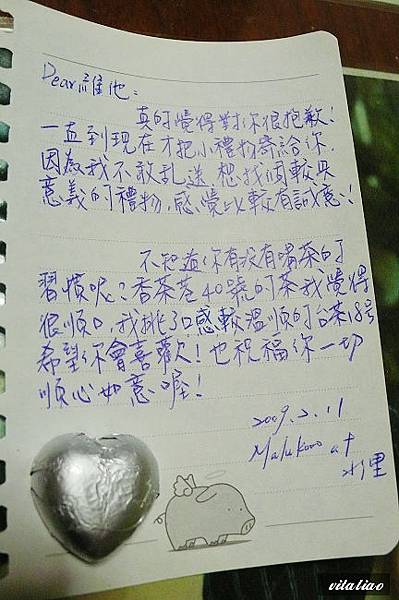 Dear 維他：
真的覺得對你很抱歉！
一直到現在才把小禮物寄給你.
因為我不敢乱送.想找個較具
意義的禮物.感覺比較有誠意！
不知道你有没有喝茶的
習慣呢？香茶巷40號的茶我覺得
很順口,我挑了口感較溫順的台茶18号
希望你會喜歡！也祝福你一切
順心如意喔！
2009.2.11
at
水里
vitaliao